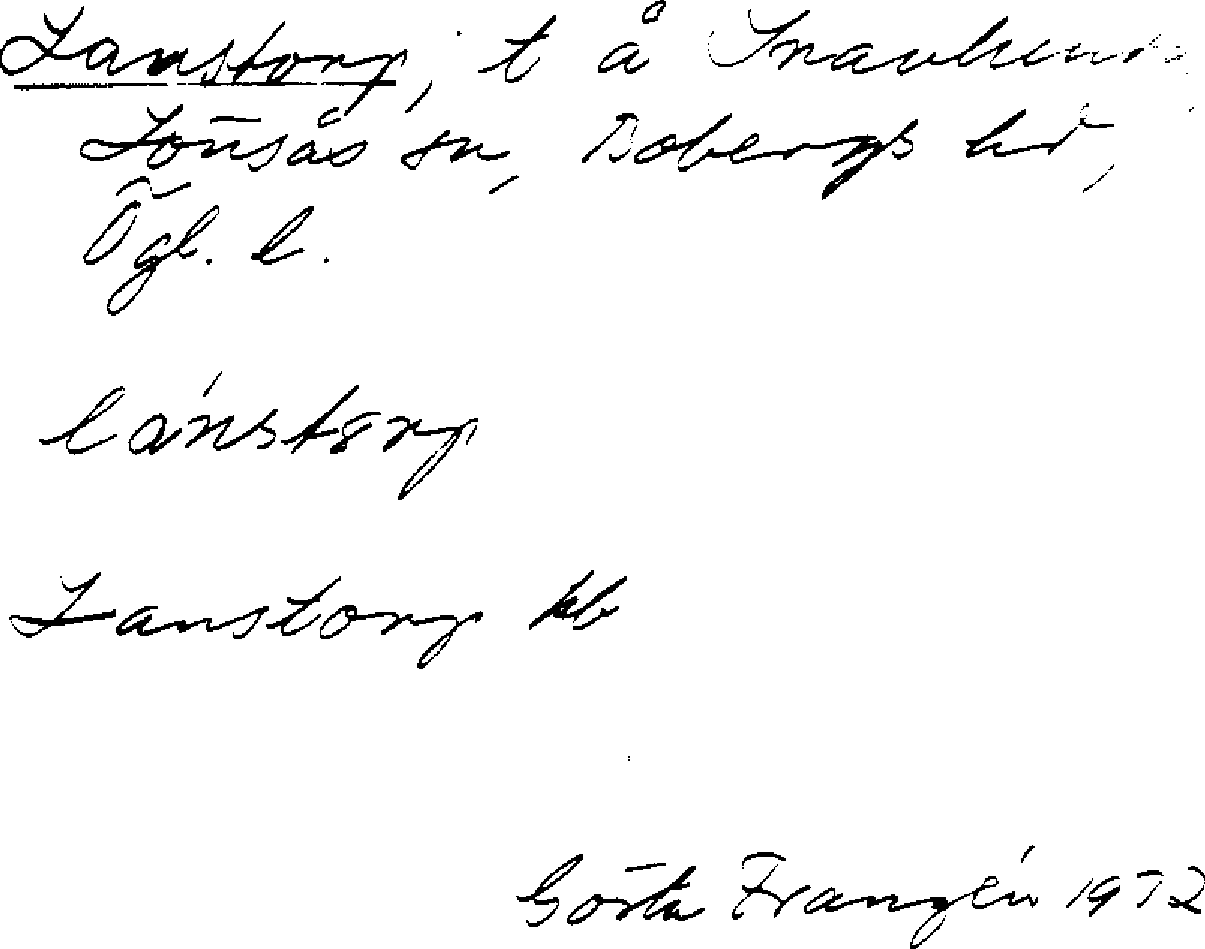 Lanstorp, t å
Lönsås sn, Bobergs hd,
Ögl. l.
lánstorp
Lanstorp kb
Gösta Franzén 1972